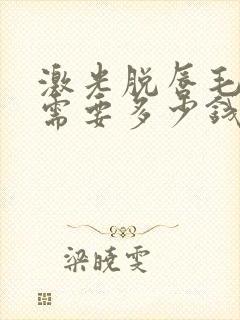 激光脱唇毛
需要多少钱
梁晓雯